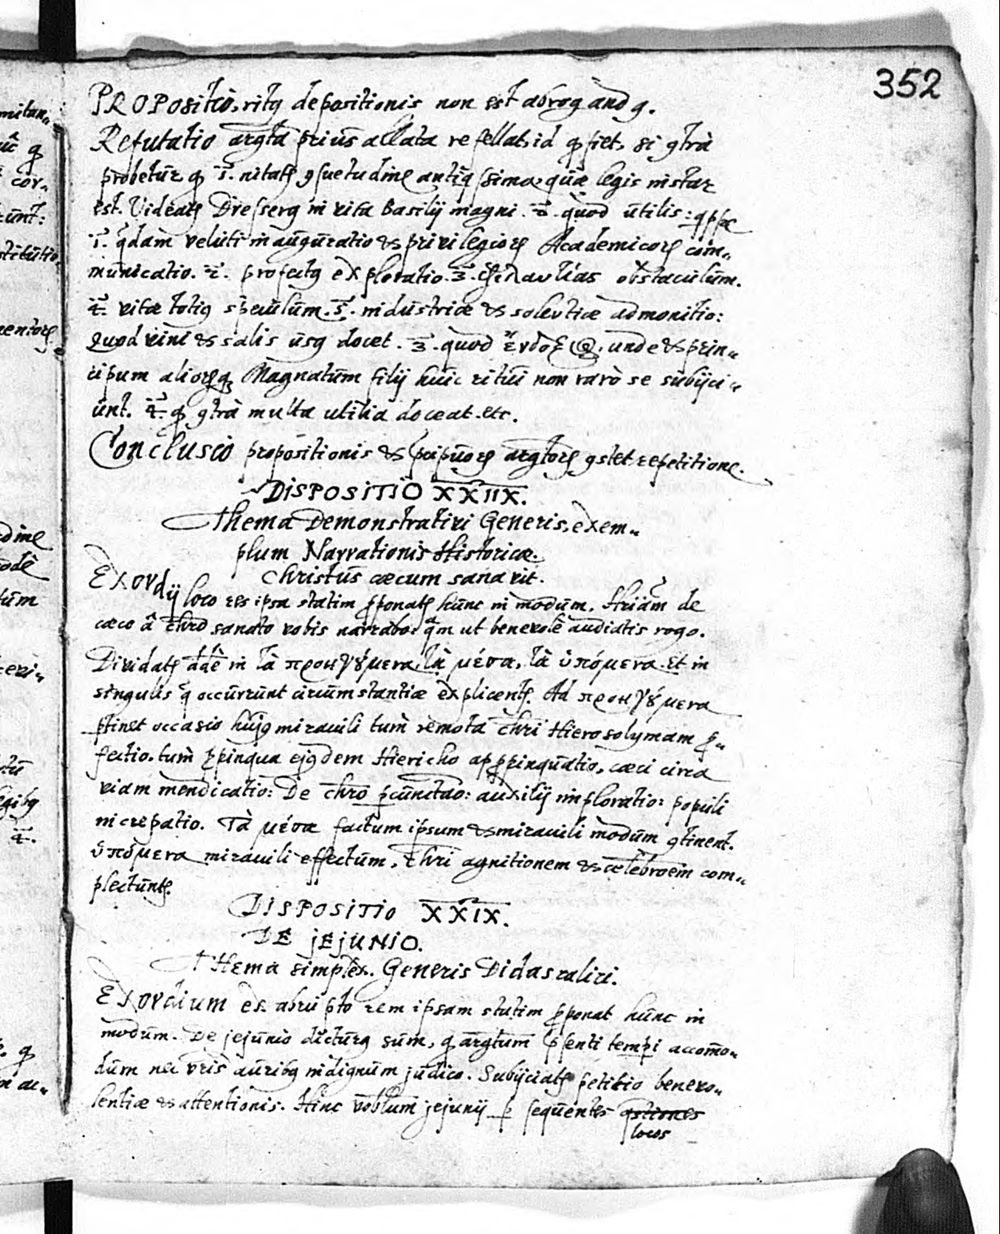 352
PROPOSITIO, ritꝰ depositionis non est abrogandꝰ.
Refutatio argta prius allata refellat, id qͦ fiet, si ꝯtrà
probetur qͩ 1. nitatʳ ꝯsuetudine antiqssima quæ legis instar
est. Videatʳ Dresserꝰ in vita Basilij magni. 2. quod utilis: qppe
1. qdam veluti inauguratio & privilegiorʳ Academicorʳ com„
municatio. 2. profectꝰ exploratio. 3. φιλαυτίας obstaculum.
4. vitæ totiꝰ speculum. 5. industriæ & solertiæ admonitio:
Quod vini & salis usꝰ docet. 3. quod ἔνδοξος, unde & prin„
cipum aliorʳq Magnatum filij huic ritui non rarò se subijci„
unt. 4. qͩ ꝯtrà multa utilia doceat. etc.
Conclusio propositionis & præcipuorʳ argtorʳ ꝯstet repetitione.
DISPOSITIO XXIIX.
Thema Demonstrativi Generis. exem„
plum Narrationis Historicæ.
Christus cæcum sanavit.
Exordij loco res ipsa statim ꝓponatʳ hunc in modum. Hriam de
cæco â Chro sanato vobis narrabo: qm ut benevolè audiatis rogo.
Dividatʳ adê in τὰ προηγȣ́μενα, τὰ μέσα, τὰ ἑπόμενα. Et in
singulis q occurrunt circumstantiæ explicentʳ. Ad προηγȣ́μενα
ꝑtinet occasio hujꝰ miraculi tum remota Chri Hierosolymam ꝓ„
fectio. tum ꝓpinqua ejꝰdem Hiericho apꝓpinquatio, cæci circa
viam mendicatio: De Chro ꝑcunctao: auxilij imploratio: populi
increpatio. Τὰ μέσα factum ipsum & miraculi modum ꝯtinent.
ἑπόμενα miraculi effectum, Chri agnitionem & celebroem com„
plectuntʳ.
DISPOSITIO XXIX.
DE JEJUNIO.
THema simplex. Generis Didascalici.
Exordium ex abrupto rem ipsam statim ꝓponat hunc in
modum. De jejunio dicturꝰ sum, qͩ argtum pſenti tempi accom̃o„
dum nec vris auribꝰ indignum judico. Subijciatʳ petitio benevo„
lentiæ & attentionis. Hinc voblum jejunij ꝑ sequentes qstiones
locos